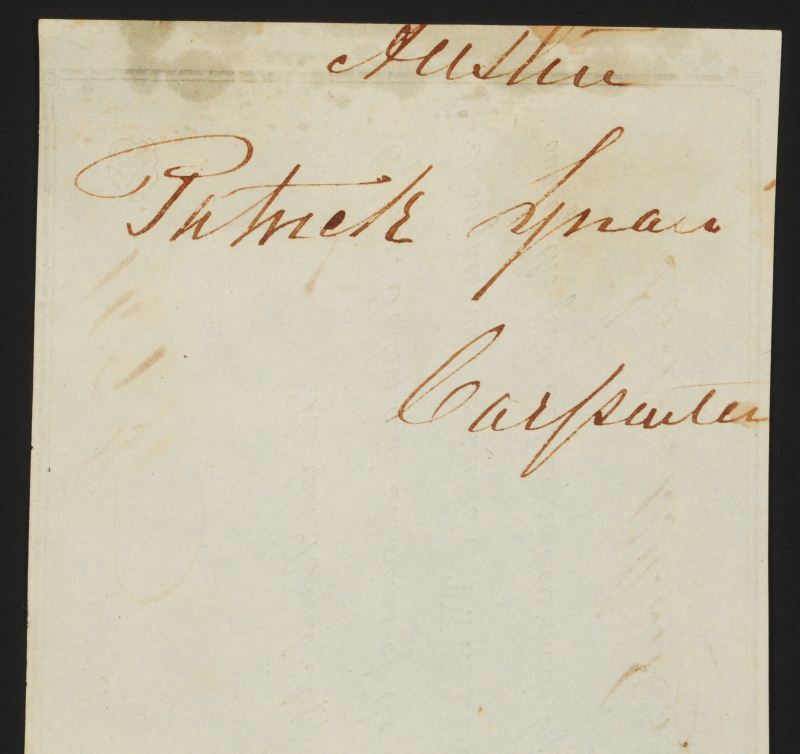 Austin
Patrick
Carpenter